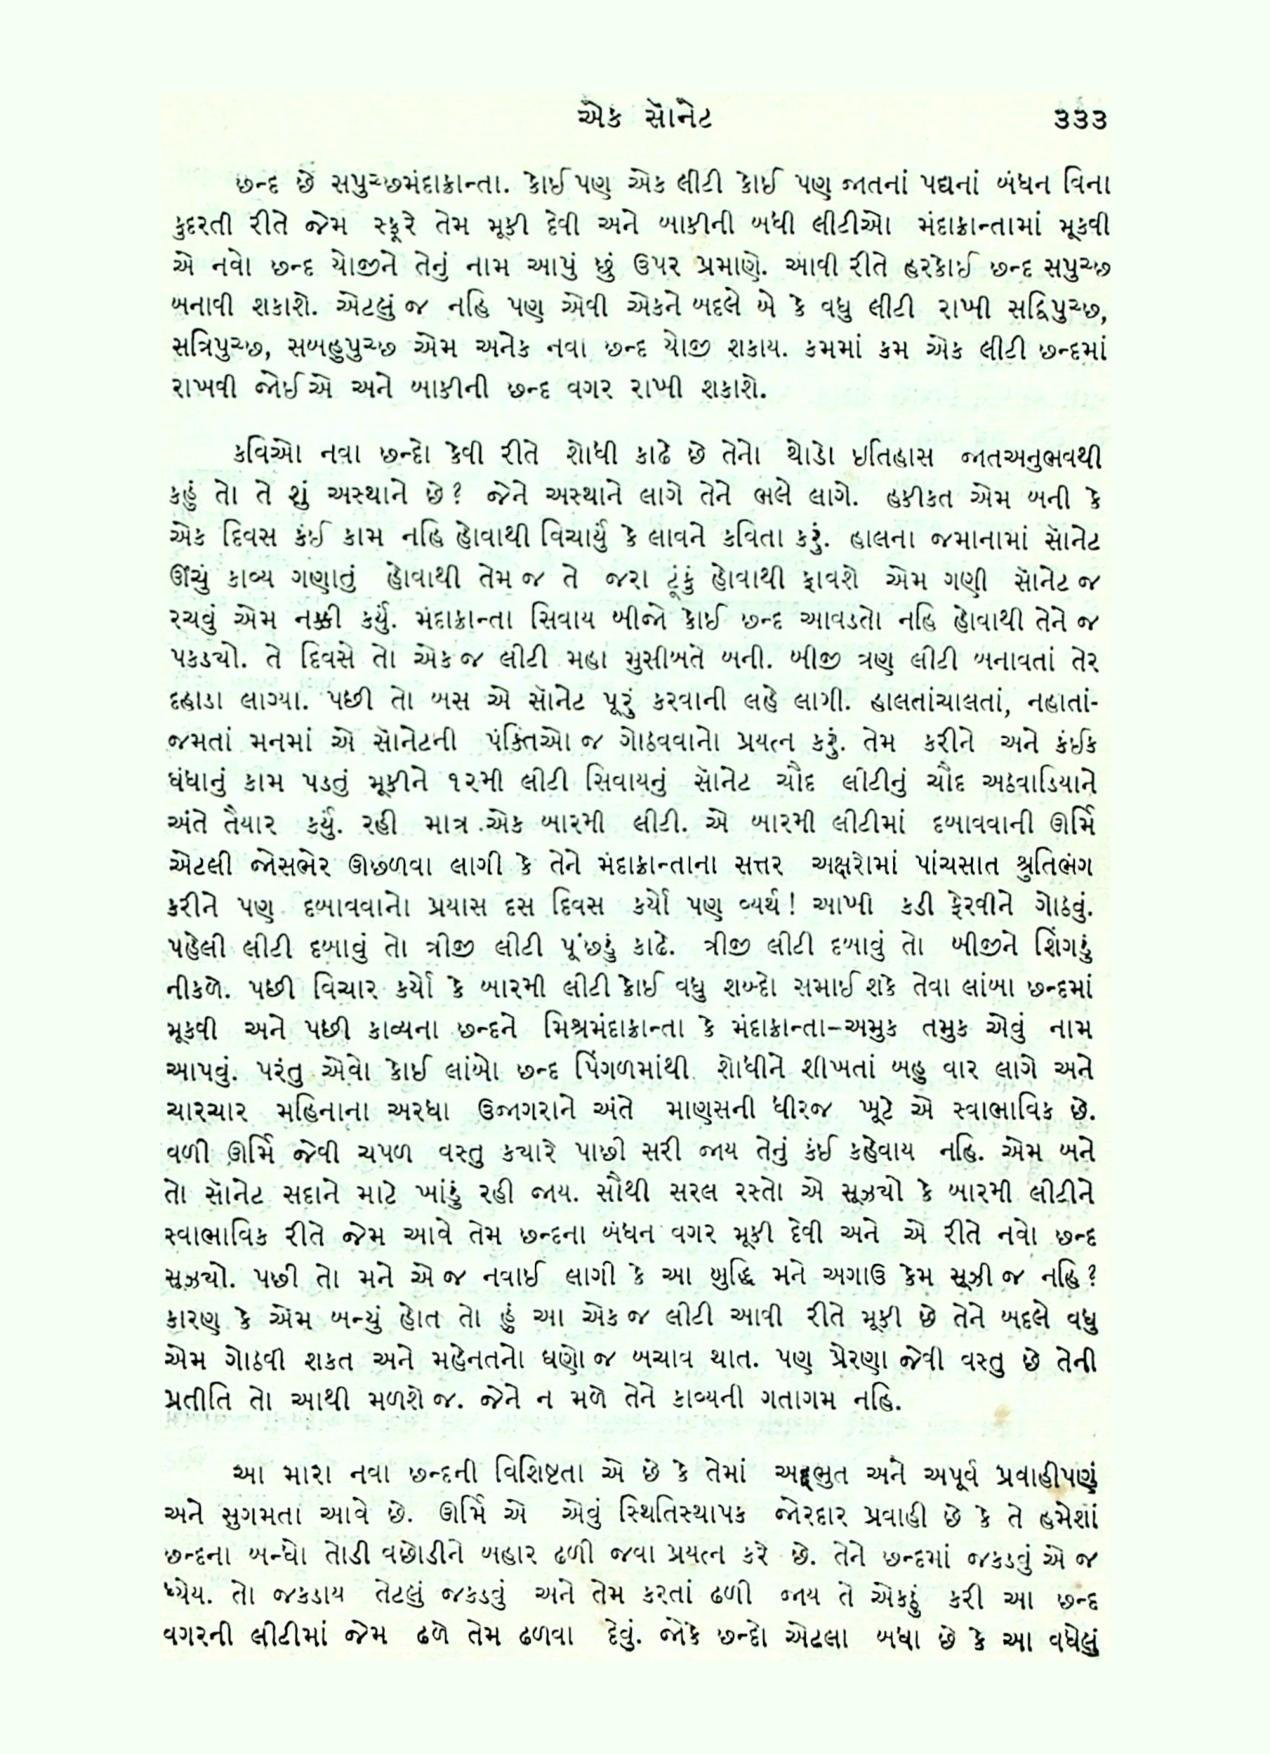 એક સૉનેટ ૩૩૩
છન્દ છે સપુચ્છમંદાક્રાન્તા. કોઈ પણ એક લીટી કોઈ પણ જાતનાં પદ્યનાં બંધન વિના
કુદરતી રીતે જેમ સ્ફૂરે તેમ મૂકી દેવી અને બાકીની બધી લીટીઓ મંદાક્રાન્તામાં મૂકવી
એ નવો છન્દ યોજીને તેનું નામ આપું છું ઉપર પ્રમાણે. આવી રીતે હરકોઈ છન્દ સપુચ્છ
બનાવી શકાશે. એટલું જ નહિ પણ એવી એકને બદલે બે કે વધુ લીટી રાખી સદ્વિપુચ્છ,
સત્રિપુચ્છ, સબહુપુચ્છ એમ અનેક નવા છન્દ યોજી શકાય. કમમાં કમ એક લીટી છન્દમાં
રાખવી જોઈએ અને બાકીની છન્દ વગર રાખી શકાશે.
કવિઓ નવા છન્દો કેવી રીતે શોધી કાઢે છે તેનો થોડો ઇતિહાસ જાતઅનુભવથી
કહું તો તે શું અસ્થાને છે? જેને અસ્થાને લાગે તેને ભલે લાગે. હકીકત એમ બની કે
એક દિવસ કંઈ કામ નહિ હોવાથી વિચાર્યું કે લાવને કવિતા કરું. હાલના જમાનામાં સૉનેટ
ઊંચું કાવ્ય ગણાતું હોવાથી તેમ જ તે જરા ટૂંકું હોવાથી ફાવશે એમ ગણી સૉનેટ જ
રચવું એમ નક્કી કર્યું. મંદાક્રાન્તા સિવાય બીજો કોઈ છન્દ આવડતો નહિ હોવાથી તેને જ
પકડ્યો. તે દિવસે તો એક જ લીટી મહા મુસીબતે બની. બીજી ત્રણ લીટી બનાવતાં તેર
દહાડા લાગ્યા. પછી તો બસ એ સૉનેટ પૂરું કરવાની લહે લાગી. હાલતાંચાલતાં, નહાતાં-
જમતાં મનમાં એ સૉનેટની પંક્તિઓ જ ગોઠવવાનો પ્રયત્ન કરું. તેમ કરીને અને કંઈક
ધંધાનું કામ પડતું મૂકીને ૧૨મી લીટી સિવાયનું સૉનેટ ચૌદ લીટીનું ચૌદ અઠવાડિયાને
અંતે તૈયાર કર્યું. રહી માત્ર એક બારમી લીટી. એ બારમી લીટીમાં દબાવવાની ઊર્મિ
એટલી જોસભેર ઊછળવા લાગી કે તેને મંદાક્રાન્તાના સત્તર અક્ષરોમાં પાંચસાત શ્રુતિભંગ
કરીને પણ દબાવવાનો પ્રયાસ દસ દિવસ કર્યો પણ વ્યર્થ! આખી કડી ફેરવીને ગોઠવું.
પહેલી લીટી દબાવું તો ત્રીજી લીટી પૂંછડું કાઢે. ત્રીજી લીટી દબાવું તો બીજીને શિંગડું
નીકળે. પછી વિચાર કર્યો કે બારમી લીટી કોઈ વધુ શબ્દો સમાઈ શકે તેવા લાંબા છન્દમાં
મૂકવી અને પછી કાવ્યના છન્દને મિશ્રમંદાક્રાન્તા કે મંદાક્રાન્તા–અમુક તમુક એવું નામ
આપવું. પરંતુ એવો કોઈ લાંબો છન્દ પિંગળમાંથી શોધીને શીખતાં બહુ વાર લાગે અને
ચારચાર મહિનાના અરધા ઉજાગરાને અંતે માણસની ધીરજ ખૂટે એ સ્વાભાવિક છે.
વળી ઊર્મિ જેવી ચપળ વસ્તુ ક્યારે પાછી સરી જાય તેનું કંઈ કહેવાય નહિ. એમ બને
તો સૉનેટ સદાને માટે ખાંડું રહી જાય. સૌથી સરલ રસ્તો એ સૂઝ્યો કે બારમી લીટીને
સ્વાભાવિક રીતે જેમ આવે તેમ છન્દના બંધન વગર મૂકી દેવી અને એ રીતે નવો છન્દ
સૂઝ્યો. પછી તો મને એ જ નવાઈ લાગી કે આ બુદ્ધિ મને અગાઉ કેમ સૂઝી જ નહિ?
કારણ કે એમ બન્યું હોત તો હું આ એક જ લીટી આવી રીતે મૂકી છે તેને બદલે વધુ
એમ ગોઠવી શકત અને મહેનતનો ઘણો જ બચાવ થાત. પણ પ્રેરણા જેવી વસ્તુ છે તેની
પ્રતીતિ તો આથી મળશે જ. જેને ન મળે તેને કાવ્યની ગતાગમ નહિ.
આ મારા નવા છન્દની વિશિષ્ટતા એ છે કે તેમાં અદ્ભુત અને અપૂર્વ પ્રવાહીપણું
અને સુગમતા આવે છે. ઊર્મિ એ એવું સ્થિતિસ્થાપક જોરદાર પ્રવાહી છે કે તે હમેશાં
છન્દના બન્ધો તોડી વછોડીને બહાર ઢળી જવા પ્રયત્ન કરે છે. તેને છન્દમાં જકડવું એ જ
ધ્યેય. તો જકડાય તેટલું જકડવું અને તેમ કરતાં ઢળી જાય તે એકઠું કરી આ છન્દ
વગરની લીટીમાં જેમ ઢળે તેમ ઢળવા દેવું. જોકે છન્દો એટલા બધા છે કે આ વધેલું